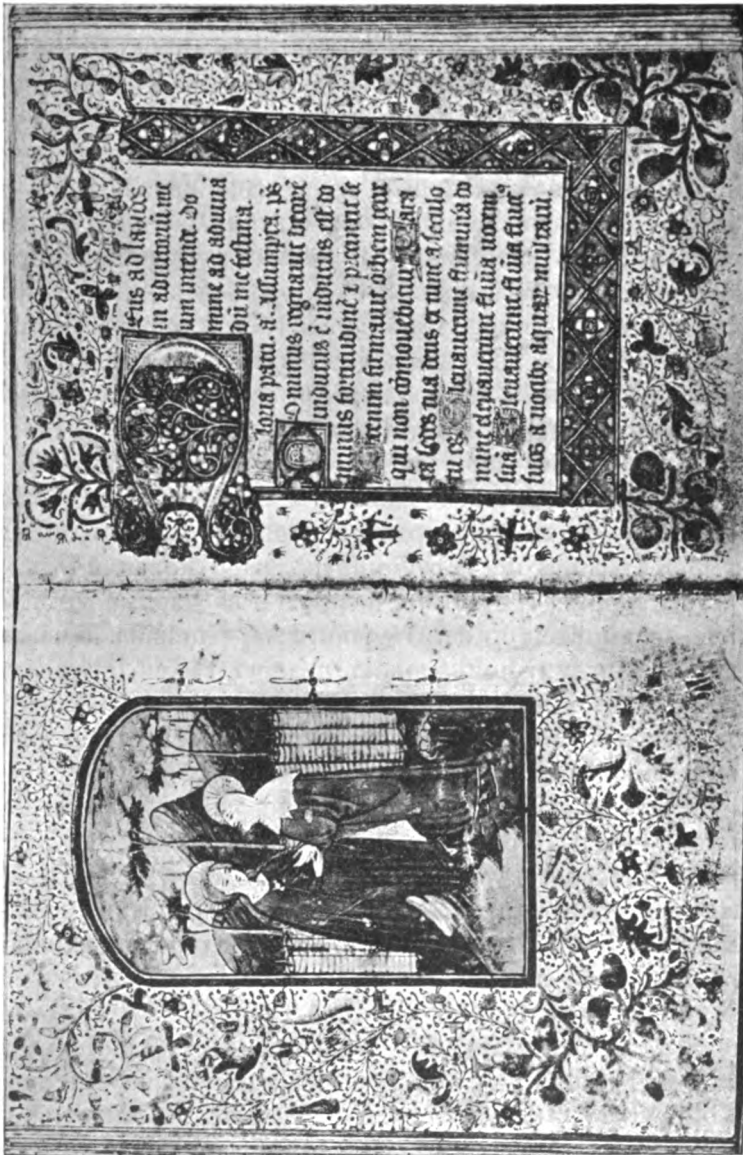 Deus ad laudes
in adiutoriũ me
um intende Do
mine ad adiuuã
dũ me festina.
Gloria patri. añ. Assumpta. ps̃
Dominus regnauit decorẽ
indutus ẽ indutus est do
minus fortitudinẽ ⁊ precinxit se
Etenim firmauit orbem terre
qui non cõmouebitur Para
ta sedes tua deus ex tunc a seculo
tu es Eleuauerunt flumina do
mine eleuauerunt flũia uocem
suã Eleuauerunt flũia fluctꝰ
suos a uocibꝫ aquarũ multarũ.